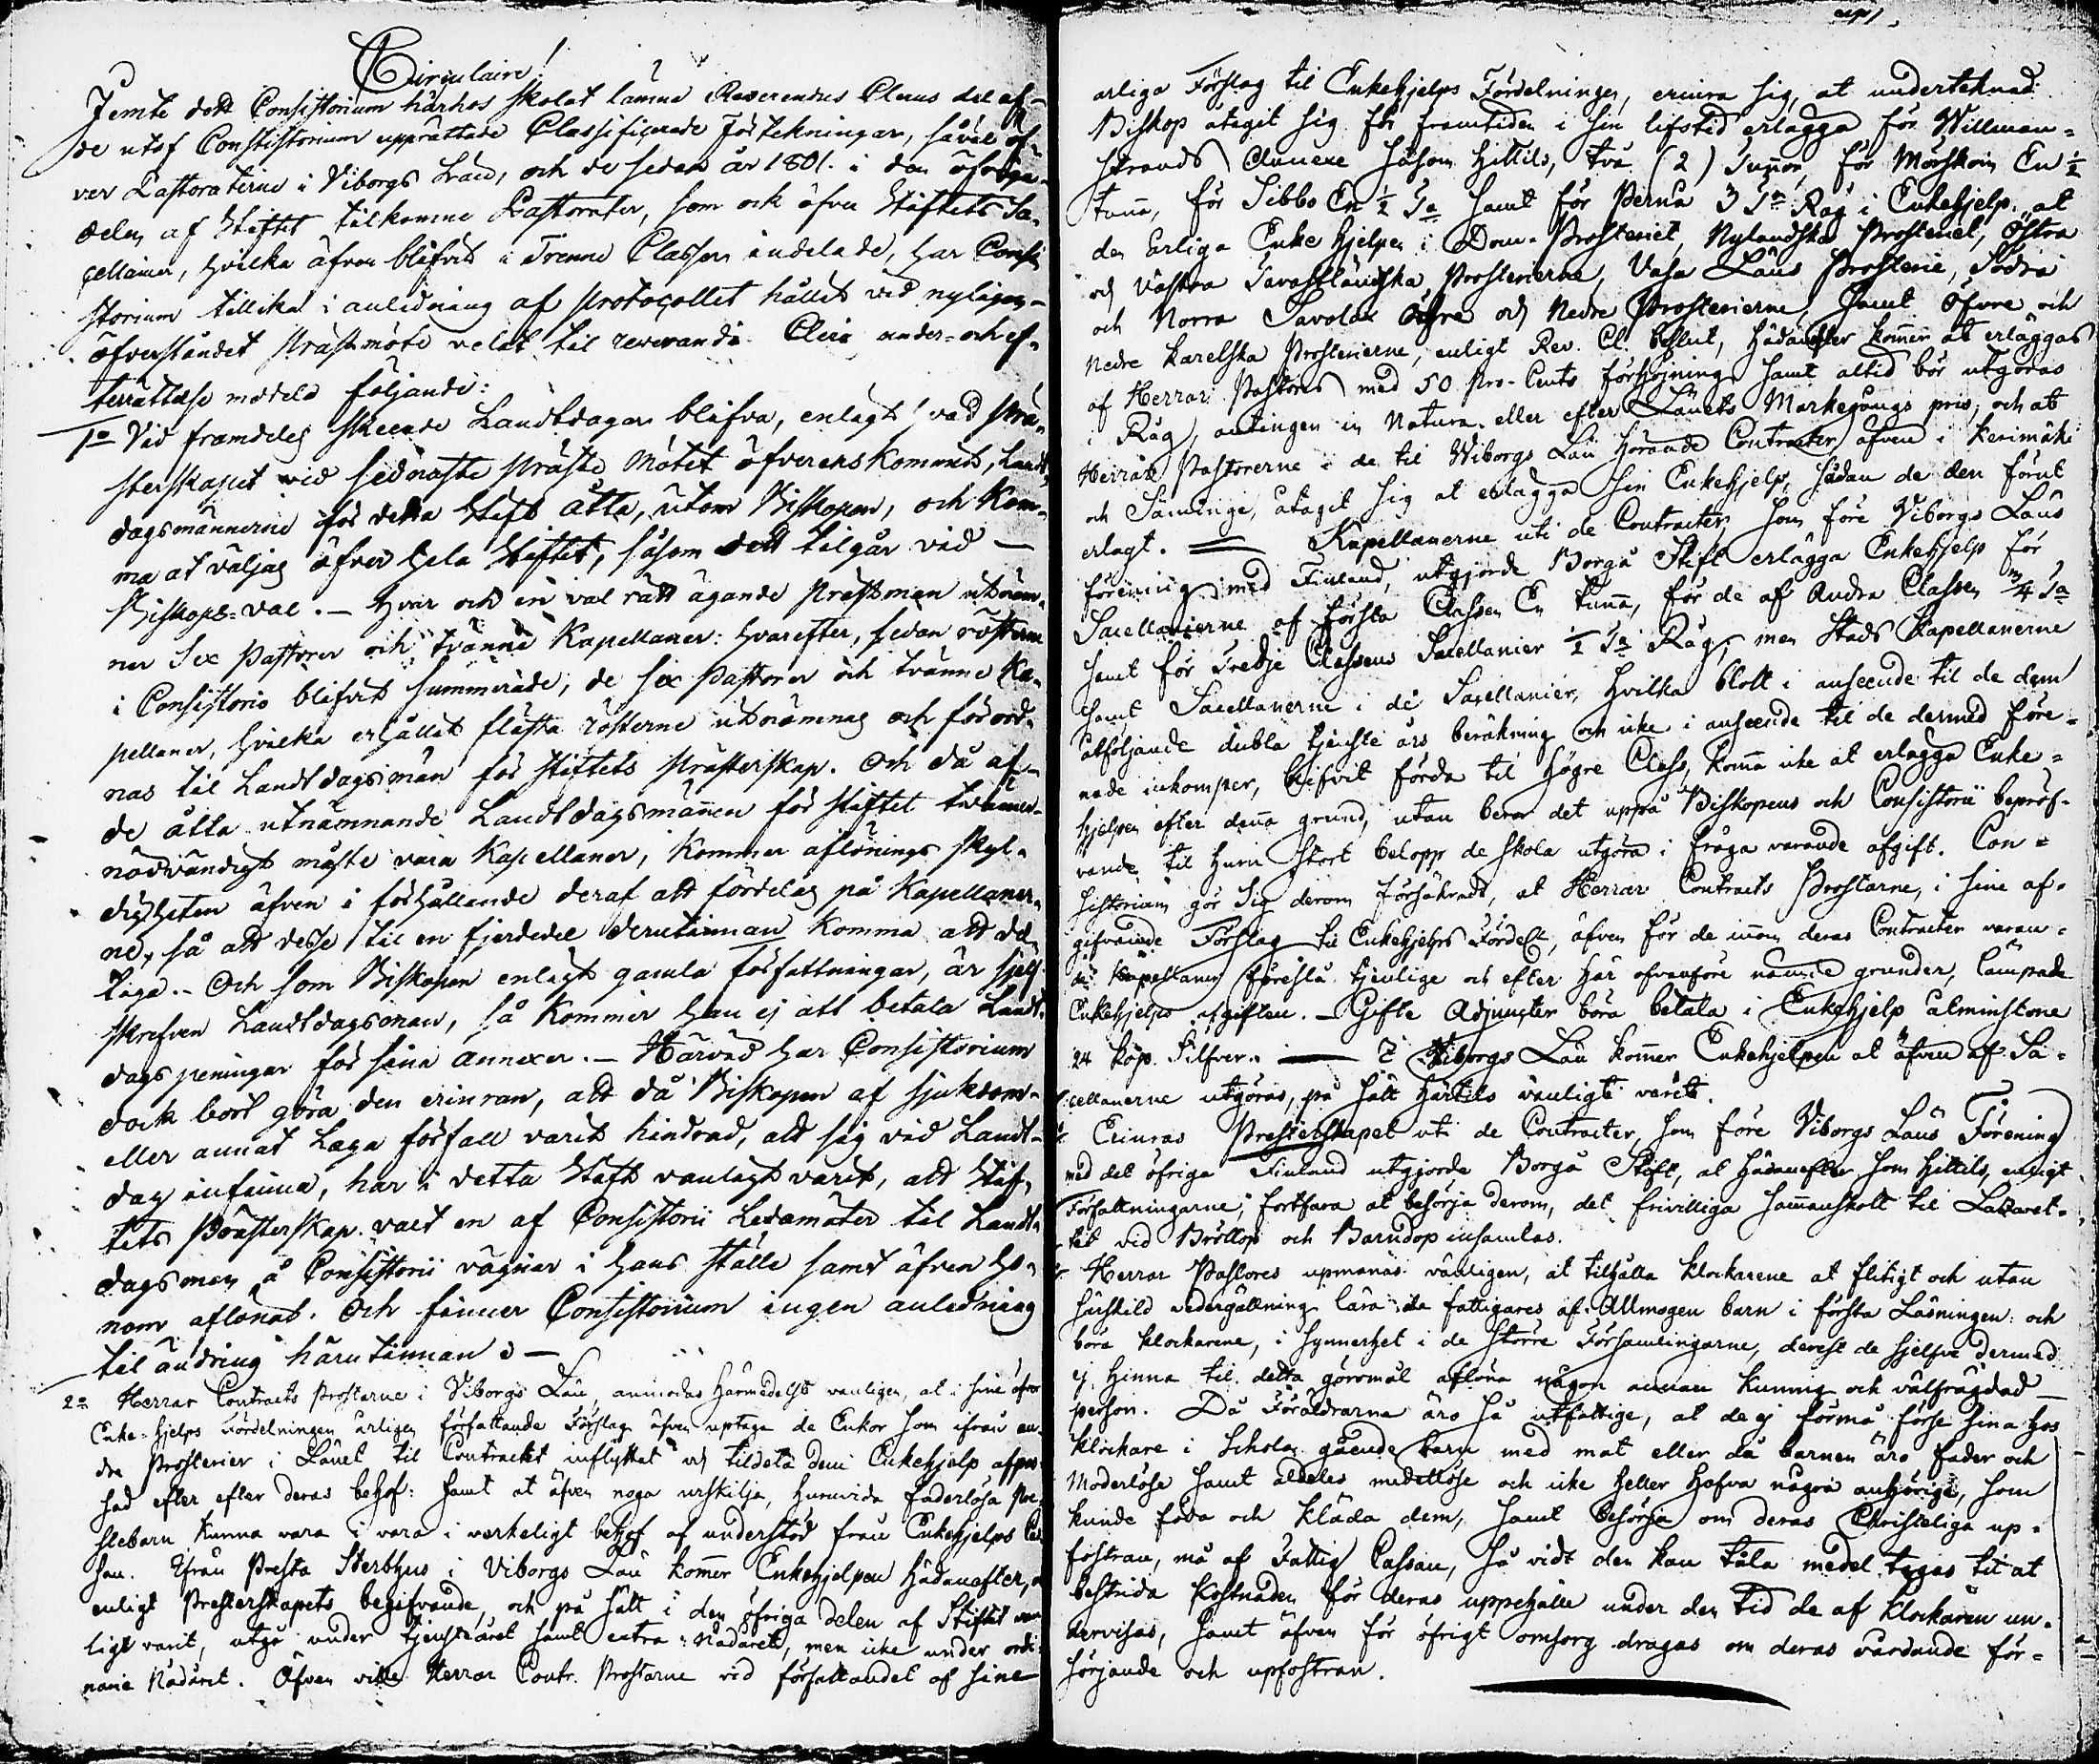 Circulaire!
Jemte dett Consistorium härhos skolat lämna Reverendus Clerus del af
de utaf Constistorium upprättade Classificerade Förtekningar, såväl öf-
ver Pastoraterne i Viborgs Län, och de sedan år 1801. i den öfriga
delen af Stiftet tilkomne Pastorater, som ock öfver Stiftets Sa-
cellanier, hvilka äfven blifvit i Trenne Classer indelade, har Consi-
storium tillika i anledning af Protocollet hållit vid nyligen
öfverståndet Prästmöte velat til reverandi Cleri under- och ef-
terrättelse meddela följande:
1o Vid framdeles skeende Landtdagar blifva, enligt vad Prä-
sterskapet vid sednaste Präste Mötet öfverenskommit, Landt-
dagsmännerne för detta Stift åtta, utom Biskopen, och kom-
ma at väljas öfver hela Stiftet, såsom dett tilgår vid
Biskops-val. — Hvar och en val rätt ägande Prestman utnäm-
ner Sex Pastorer och tvänne Kapellaner: hvarefter, sedan rösterne
i Consistorio blifvit summerade, de sex Pastorer och tvänne Ka-
pellaner, hvilka erhållit flästa rösterne utnämnas och förord-
nas til Landtdagsmän för Stiftets Prästerskap. Och då af
de åtta utnämnande Landtdagsmännen för Stiftet tvänne
nödvändigt måste vara Kapellaner, kommer aflönings skyl-
digheten äfven i förhållande deraf att fördelas på Kapellaner-
ne, så att desse til en fjerdedel derutinnan komma att del-
taga. — Och som Biskopen enligt gamla författningar, är sjelf
skrefven Landtdagsman, så kommer han ej att betala Landt-
dags peningar för sina annexer. — Härvid har Consistorium
dock bort göra den erinran, att då Biskopen af sjukdom
eller annat Laga förfall varit hindrad, att sig vid Landt-
dag infinna, har i detta Stift vanligt varit, att Stif-
tets Prästerskap valt en af Consistorii Ledamöter til Landt-
dagsman å Consistorii vägnar i hans ställe samt äfven ho-
nom aflönat. Och finner Consistorium ingen anledning
til ändring härutinnan. —
2o Herrar Contracts Prostarne i Viborgs Län, anmodas härmedelst vanligen, at i sine öfver
Enke-hjelps Fördelningen årligen författande Förslag äfven uptaga de Enkor som ifrån an-
dre Prosterier i Länet til Contractet inflyttat och tildela dem Enkehjelp afpas-
sad efter efter deras behof: samt at äfven noga urskilja, huruvida faderlösa Pre-
stebarn kunna vara i vara i verkeligt behof af understöd från Enkehjelps Cas-
san. Ifrån Presta Sterbhus i Viborgs Län kommer Enkehjelpen hädanefter,
enligt Presterskapets begifvande, och på sätt i den öfriga delen af Stiftet van-
ligt varit, utgå under tjensteåret samt extra Nådåret, men icke under ordi-
narie Nådåret. Äfven ville Herrar Contr. Prostarne vid författandet af sine
årliga Förslag til Enkehjelps Fördelningen, erinra sig, at undertecknad
Biskop åtagit sig för framtiden i sin lifstid erlägga för Willman-
strands Annexe såsom hittils, två (2) Tunnor, för Mörskom En ½
tunna, för Sibbo En ½ Ta samt för Pernå 3 Tr Råg i Enkehjelp, at
den årliga Enke hjelpen i Dom-Prosteriet, Nylandska Prosteriet, Östra
och Västra Tavastländska Prosterierne, Vasa Läns Prosterie, Södra
och Norra Savolax Öfre och Nedre Prosterierne, samt Öfvre och
Nedre Karelska Prosterierne, enligt Rev. Cl. beslut, hädanefter kommer at erläggas
af Herrar Pastores med 50 Pro-Cents förhöjning samt altid bör utgöras
i Råg, antingen in Natura eller efter Länets Markegångs pris; och at
Herrar Pastorerne i de til Wiborgs Län hörande Contracter, äfven i Kerimäki
och Säminge, åtagit sig at erlägga sin Enkehjelp, sådan de den förut
erlagt. — Kapellanerne uti de Contracter som före Viborgs Läns
förening med Finland, utgjorde Borgå Stift erlägga Enkehjelp för
Sacellanierne af första Classen En tunna, för de af Andra Classen ¾ Ta
samt för Tredje Classens Sacellanier ½ Ta Råg; men Stads Kapellanerne
samt Sacellanerne i de Sacellanier, hvilka blott i anseende til de dem
åtföljande dubla tjenste års beräkning och icke i anseende til de dermed före-
nade inkomster, blifvit förda til högre Class, komma icke at erlägga Enke-
hjelpen efter denna grund, utan beror det uppå Biskopens och Consistorii bepröf-
vande, til huru stort belopp de skola utgöra i fråga varande afgift. Con-
sistorium gör sig derom försäkradt, at Herrar Contracts Prostarne, i sine af-
gifvande Förslag til Enkehjelps Fördeln, äfven för de innom deras Contracter varan-
de Kapellaner föreslå tjenlige och efter här ofvanföre nämnde grunder, lämpade
Enkehjelps afgiften. — Gifte Adjuncter böra betala i Enkehjelp alminstone
24 kop. Silfver. — I Viborgs Län kommer Enkehjelpen at äfven af Sa-
cellanerne utgöras, på sätt härtils vanligt varit.
Erinras Presterskapet uti de Contracter, som före Viborgs Läns Förening
med det öfriga Finland utgjorde Borgå Stift, at hädanefter som hittils, enligt
Författningarne; fortfara at besörja derom, det frivilliga sammanskott til Lazaret-
tet vid Bröllop och Barndop insamlas.
Herrar Pastores upmanas vänligen, at tilhålla klockarene at flitigt och utan
särskild vedergällning lära de fattigares af Allmogen barn i första Läsningen: och
böra klockarene, i synnerhet i de större Församlingarne, derest de sjelfve dermed
ej hinna til detta göromål aflöna någon annan kunnig och välfrägdad
person. Då Föräldrarna äro så utfattige, at de ej förmå förse sina hos
klockare i Schola gående barn med mat eller då barnen äro fader och
Moderlöse samt aldeles medellöse och icke heller hafva några anhörige, som
kunde föda och kläda dem, samt besörja om deras Christeliga up-
fostran, må af Fattig Cassan, så vidt den kan tåla medel tagas til at
bestrida kostnaden för deras uppehälle under den tid de af klockaren un-
dervisas, samt äfven för öfrigt omsorg dragas om deras vårdande för-
sörjande och upfostran.